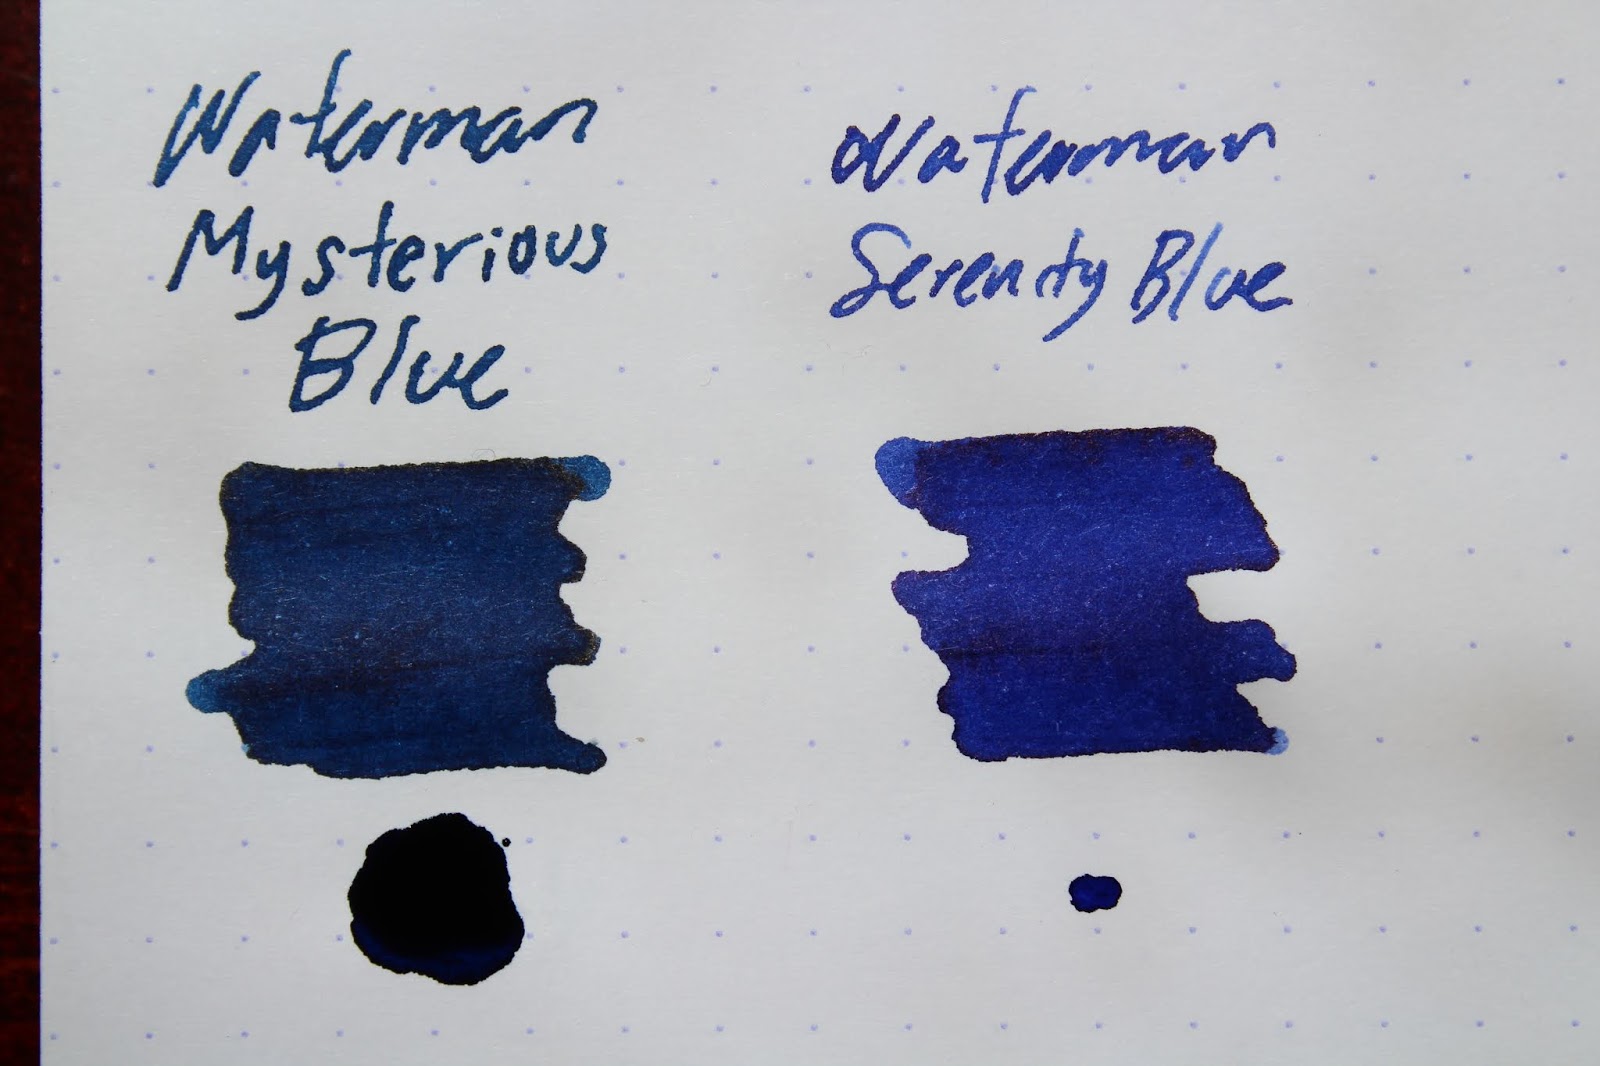 Waterman
Mysterious
Blue
Waterman
Serenity Blue